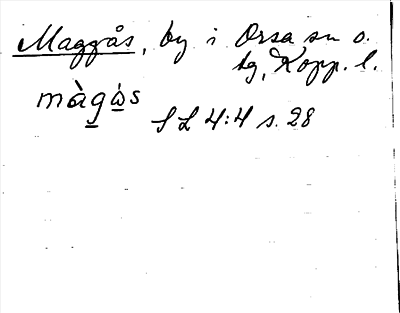 Maggås, by i Orsa sn o.
tg, Kopp. l.
màgås
SL 4:4 s. 28